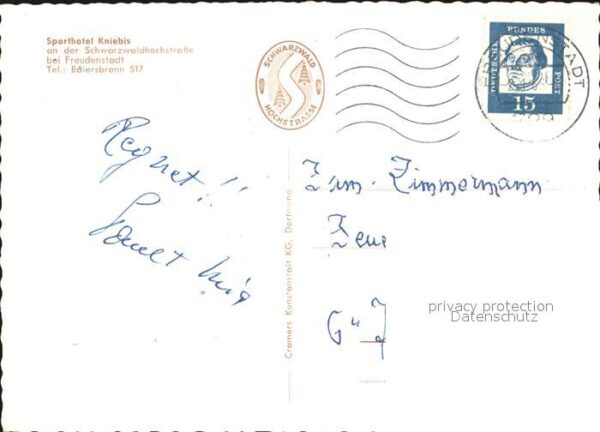 Sporthotel Kniebis
an der Schwarzwaldhochstraße
bei Freudenstadt
Tel.: Baiersbronn 517
SCHWARZWALD
HOCHSTRASSE
DEUTSCHE BUNDES POST
15
FREUDENSTADT
Regnet!!
Fam. Zimmermann
Cramers Kunstanstalt KG. Dortmund
privacy protection
Datenschutz